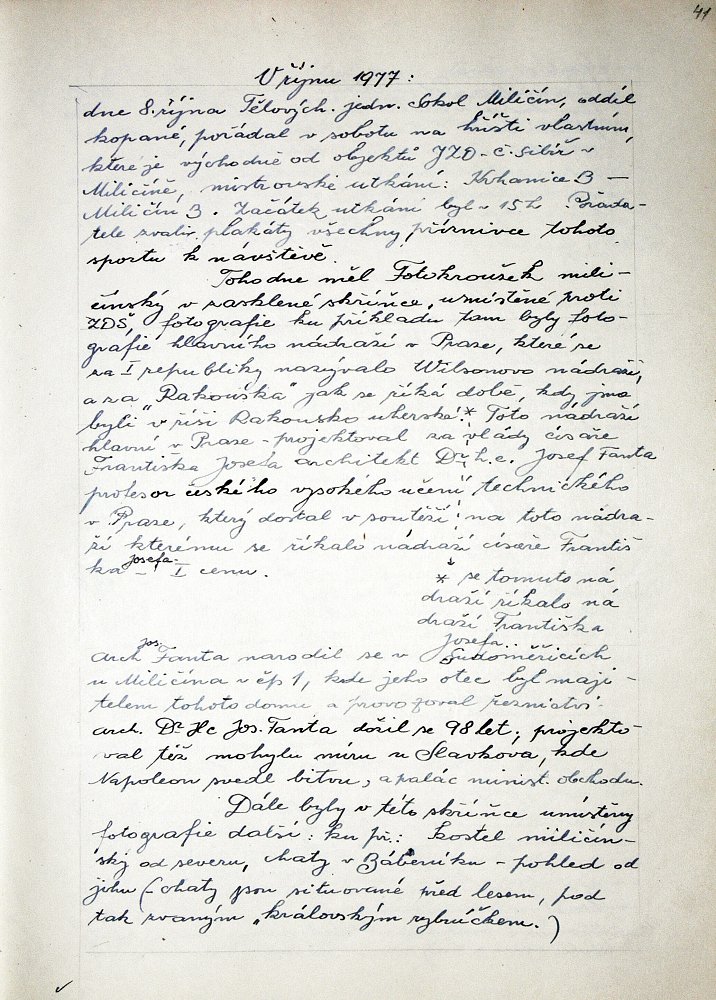 41
V říjnu 1977:
dne 8. října Tělových. jedn. Sokol Miličín, oddíl
kopané, pořádal v sobotu na hřišti vlastním,
které je východně od objektů JZD - Č. Sibíř v
Miličíně, mistrovské utkání: Krhanice B -
Miličín B. Začátek utkání byl v 15 h Pořada-
telé zvali plakáty všechny příznivce tohoto
sportu k návštěvě.
Toho dne měl Fotokroužek mili-
čínský v zasklené skříňce, umístěné proti
ZDŠ, fotografie ku příkladu tam byly foto-
grafie hlavního nádraží v Praze, které se
za I republiky nazývalo Wilsonovo nádraží,
a za "Rakouska" jak se říká době, kdy jsme
byli v říši Rakousko uherské.* Toto nádraží
hlavní v Praze - projektoval za vlády císaře
Františka Josefa architekt Dr. h. c. Josef Fanta
profesor českého vysokého učení technického
v Praze, který dostal v soutěži na toto nádra-
ží kterému se říkalo nádraží císaře Františ
ka Josefa - I cenu.
* se tomuto ná
draží říkalo ná
draží Františka
Josefa..
arch Jos. Fanta narodil se v Sudoměřicích
u Miličína v čp 1, kde jeho otec byl maji-
telem tohoto domu a provozoval řeznictví.
arch. Dr Hc Jos. Fanta dožil se 98 let, projekto
val též mohylu míru u Slavkova, kde
Napoleon svedl bitvu, a palác minist. obchodu.
Dále byly v této skříňce umístěny
fotografie další: ku př.: kostel miličín-
ský od severu, chaty v Záběníku - pohled od
jihu (- chaty jsou situované před lesem, pod
tak zvaným "královským rybníčkem.)